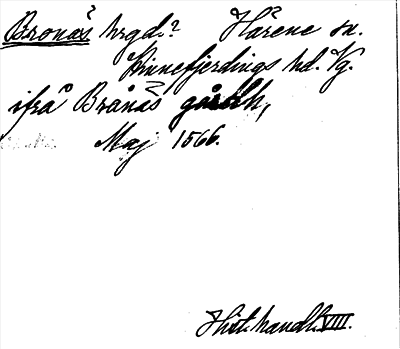 Bronäs? hrgd.? Härene sn.
Kinnefjerdings hd. Vg.
ifrå Brånäs gårdh,
Maj 1566.
Hist. handl. VIII.